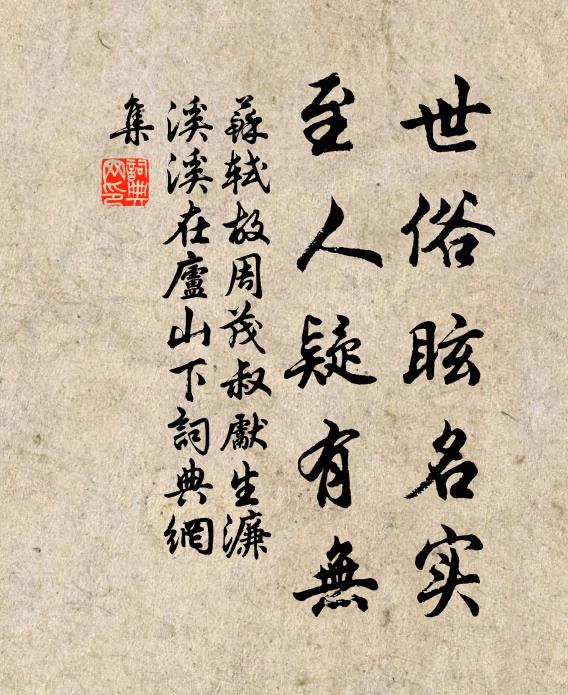 世俗眩名实
至人疑有無
蘇軾故周茂叔獻生濂
溪溪在廬山下詞典網
集
詞典網印